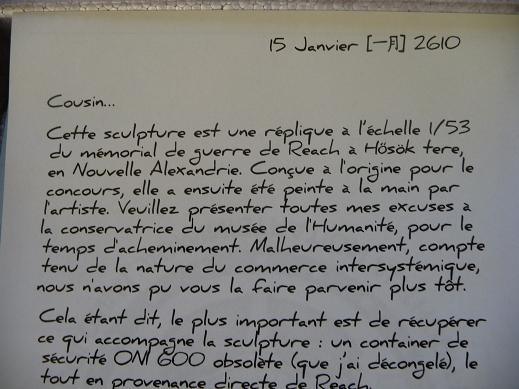 15 Janvier [一月] 2610
Cousin...
Cette sculpture est une réplique à l'échelle 1/53
du mémorial de guerre de Reach à Hösök tere,
en Nouvelle Alexandrie. Conçue à l'origine pour le
concours, elle a ensuite été peinte à la main par
l'artiste. Veuillez présenter toutes mes excuses à
la conservatrice du musée de l'Humanité, pour le
temps d'acheminement. Malheureusement, compte
tenu de la nature du commerce intersystémique,
nous n'avons pu vous la faire parvenir plus tôt.
Cela étant dit, le plus important est de récupérer
ce qui accompagne la sculpture : un container de
sécurité ONI 600 obsolète (que j'ai décongelé), le
tout en provenance directe de Reach.